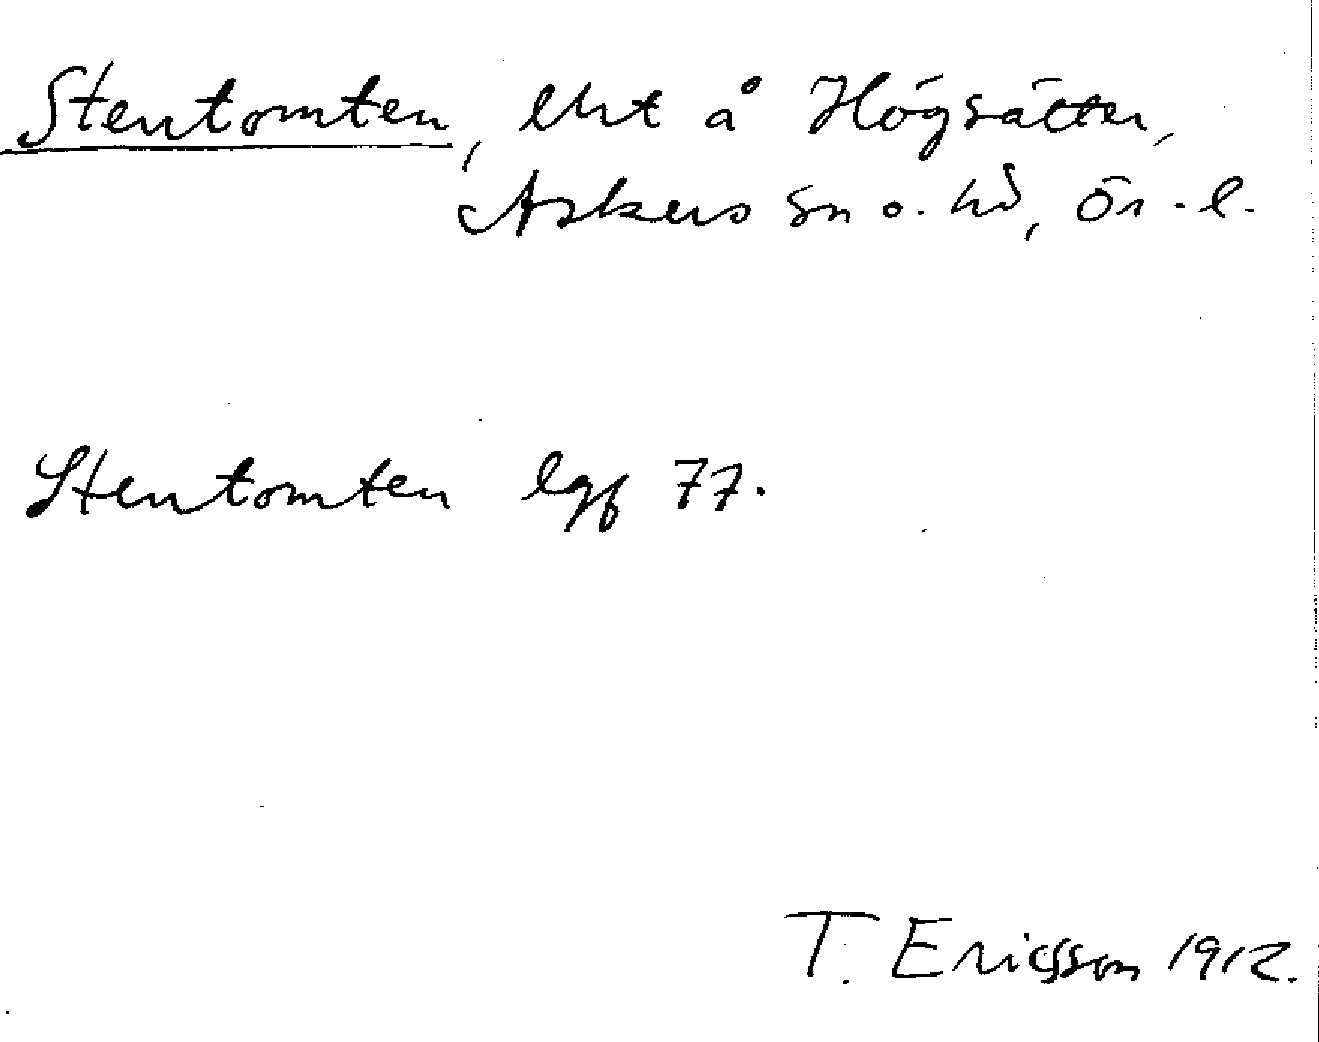 Stentomten, lht å Högsätter,
Askers sn o. hd, Ör. l.
Stentomten lgf 77.
T. Ericsson 1912.